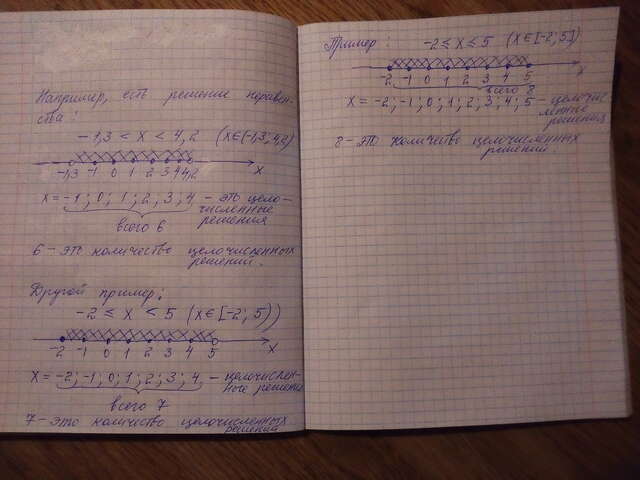 Например, есть решение неравен-
ства:
-1,3 < x < 4,2 (x∈(-1,3; 4,2)
-1,3 -1 0 1 2 3 4 4,2 x
x = -1; 0; 1; 2; 3; 4 - это цело-
численные
решения
всего 6
6 - это количество целочисленных
решений.
Другой пример:
-2 ≤ x < 5 (x∈[-2; 5))
-2 -1 0 1 2 3 4 5 x
x = -2; -1; 0; 1; 2; 3; 4 - целочислен-
ные решения
всего 7
7 - это количество целочисленных
решений
Пример: -2 ≤ x ≤ 5 (x∈[-2; 5])
-2 -1 0 1 2 3 4 5 x
всего 8
x = -2; -1; 0; 1; 2; 3; 4; 5 - целочис
ленные
решения
8 - это количество целочисленных
решений